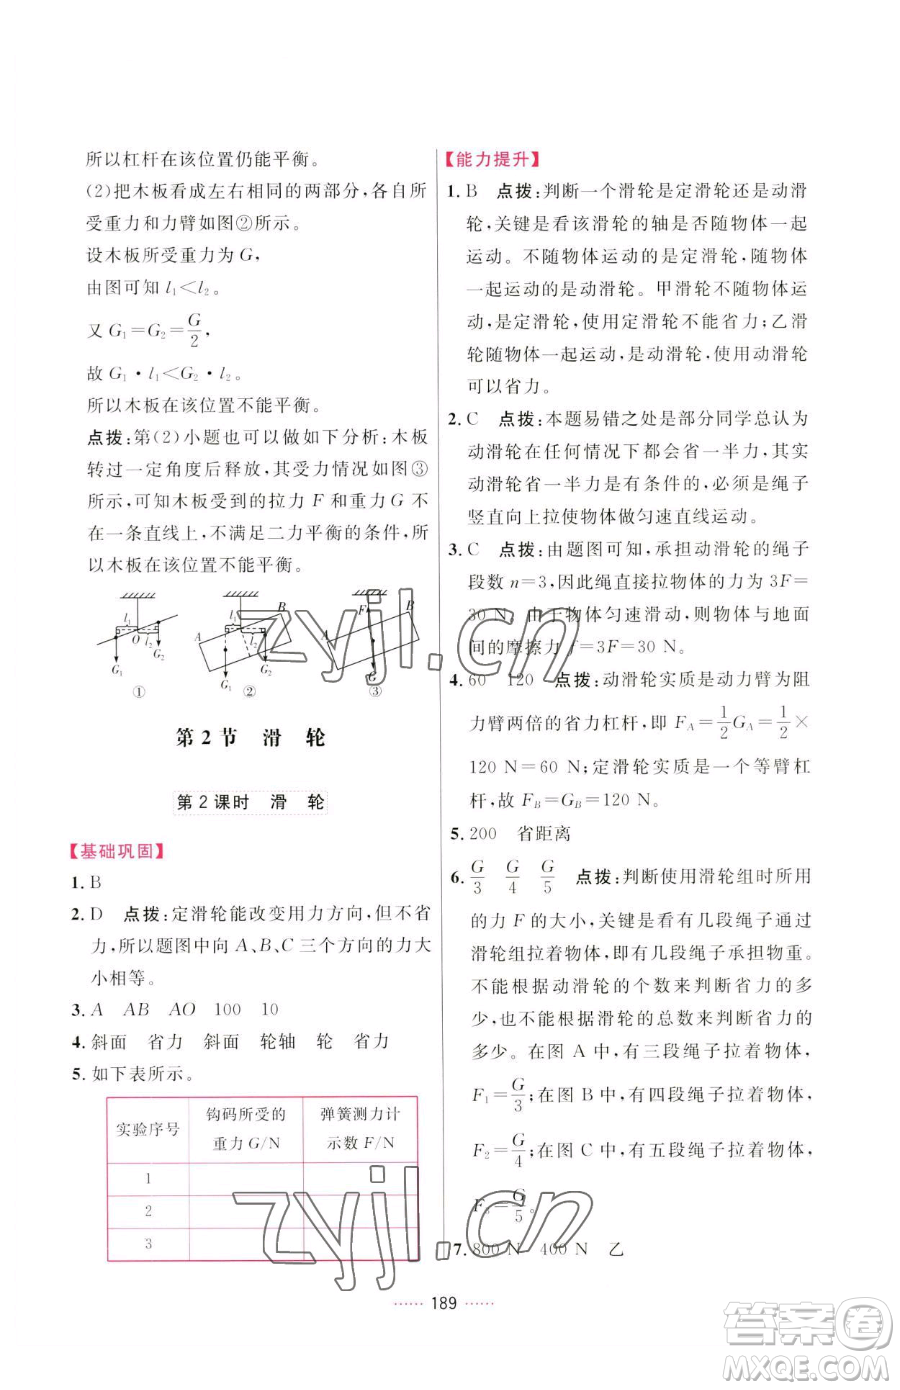 所以杠杆在该位置仍能平衡。
(2)把木板看成左右相同的两部分,各自所
受重力和力臂如图②所示。
设木板所受重力为 G,
由图可知 l₁<l₂。
又 G₁=G₂=G/2,
故 G₁·l₁<G₂·l₂。
所以木板在该位置不能平衡。
点拨:第(2)小题也可以做如下分析:木板
转过一定角度后释放,其受力情况如图③
所示,可知木板受到的拉力 F 和重力 G 不
在一条直线上,不满足二力平衡的条件,所
以木板在该位置不能平衡。
l₁ O l₂ G₁ G₂ ①
A B l₁ l₂ G₁ G₂ ②
F A B G ③
第 2 节 滑 轮
第 2 课时 滑 轮
【基础巩固】
1. B
2. D 点拨:定滑轮能改变用力方向,但不省
力,所以题图中向 A、B、C 三个方向的力大
小相等。
3. A AB AO 100 10
4. 斜面 省力 斜面 轮轴 轮 省力
5. 如下表所示。
实验序号 钩码所受的重力 G/N 弹簧测力计示数 F/N
1
2
3
【能力提升】
1. B 点拨:判断一个滑轮是定滑轮还是动滑
轮,关键是看该滑轮的轴是否随物体一起
运动。不随物体一起运动的是定滑轮,随物体
一起运动的是动滑轮。甲滑轮不随物体运
动,是定滑轮,使用定滑轮不能省力;乙滑
轮随物体一起运动,是动滑轮,使用动滑轮
可以省力。
2. C 点拨:本题易错之处是部分同学总认为
动滑轮在任何情况下都会省一半力,其实
动滑轮省一半力是有条件的,必须是绳子
竖直向上拉使物体做匀速直线运动。
3. C 点拨:由题图可知,承担动滑轮的绳子
段数 n=3,因此绳直接拉物体的力为 3F=
30 N。由于物体匀速滑动,则物体与地面
间的摩擦力 f=3F=30 N。
4. 60 120 点拨:动滑轮实质是动力臂为阻
力臂两倍的省力杠杆,即 F_A=1/2G_A=1/2×
120 N=60 N;定滑轮实质是一个等臂杠
杆,故 F_B=G_B=120 N。
5. 200 省距离
6. G/3 G/4 G/5 点拨:判断使用滑轮组时所用
的力 F 的大小,关键是看有几段绳子通过
滑轮组拉着物体,即有几段绳子承担物重。
不能根据动滑轮的个数来判断省力的多
少,也不能根据滑轮的总数来判断省力
的多少。在图 A 中,有三段绳子拉着物体,
F₁=G/3;在图 B 中,有四段绳子拉着物体,
F₂=G/4;在图 C 中,有五段绳子拉着物体,
F₃=G/5。
7. 800 N 400 N 乙
······ 189 ······
zyjl.cn
zyjl.cn
答案圈
MXQE.COM